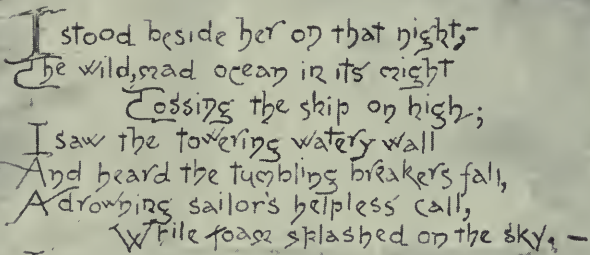 I stood beside her on that night,-
The wild, mad ocean in its might
Tossing the ship on high;
I saw the towering watery wall
And heard the tumbling breakers fall,
A drowning sailor's helpless call,
While foam splashed on the sky, —